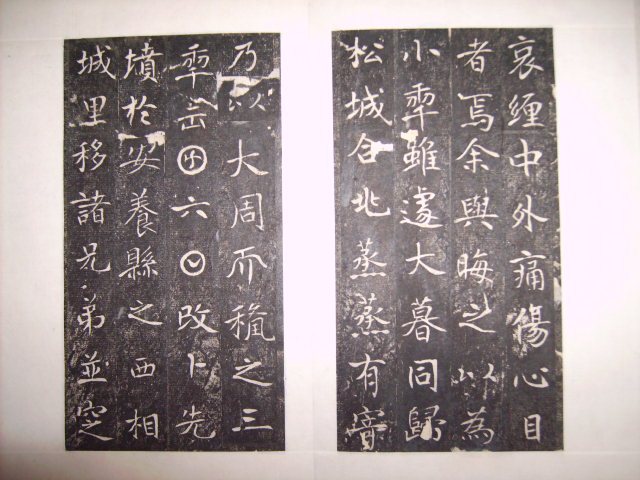 哀纏中外痛傷心目
者焉余與晦之以為
小𠡦雖遽大暮同歸
松城北蒸蒸有
乃以大周𠀑𥠢之三
𠡦𠙺囝六𡆠改卜先
墳於安養縣之西相
城里移諸兄弟並窆